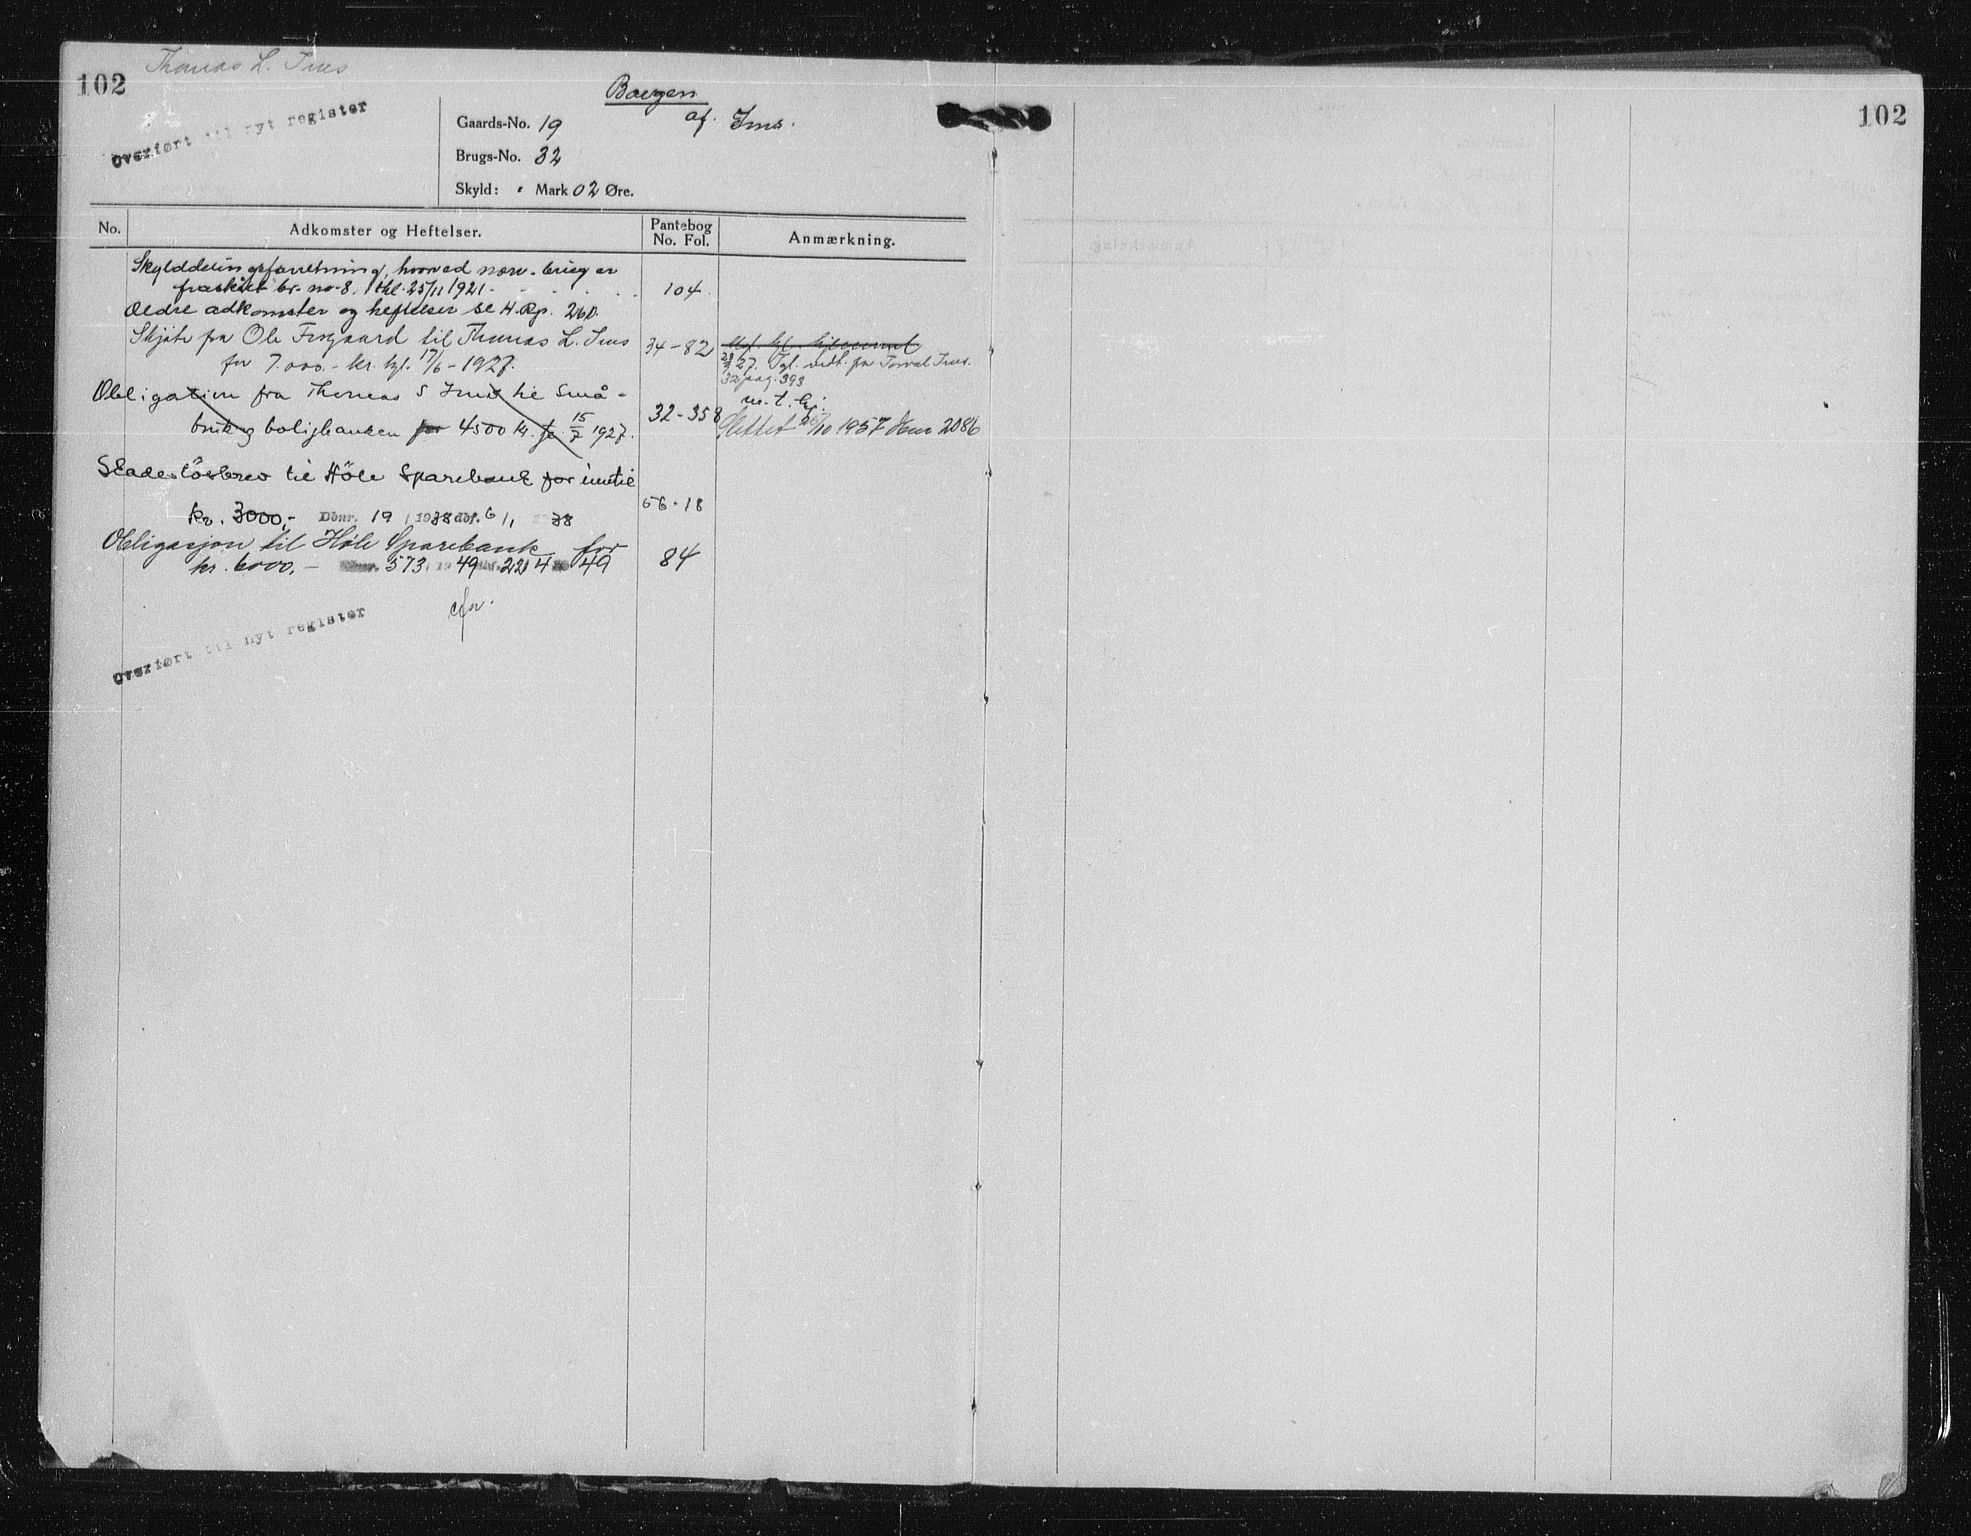 102
Thomas L. Ims
Overført til nyt register
Gaards-No. 19
Brugs-No. 32
Skyld: Mark 02 Øre.
af Ims.
102
No.
Adkomster og Heftelser.
Pantebog
No. Fol.
Anmærkning.
Skylddelingsforretning, hvorved nærv. brug er
fraskilt br. no 8, thl. 25/11 1921.
104
Ældre adkomster og heftelser se H. Rp. 260.
Skjøte fra Ole Frøgaard til Thomas L. Ims
34-82
for 7.000.- kr. tgl. 17/6-1927.
27. Tgl. vidt. fra Torval Ims.
32 pag. 393
Obligation fra Thomas S Ims til Små-
32-358
m. t. Ej.
bruk og boligbanken for 4500 kr. 15/7 1927.
Slettet /10 1957 2086
Skadesløsbrev til Höle Sparebank for inntil
kr. 3000,- Dbnr. 19 1938 dbf. 6/1 38
56-18
Obligasjon til Høle Sparebank for
kr. 6000,- Dbnr. 573 1949 22 4 49
84
Overført til nyt register